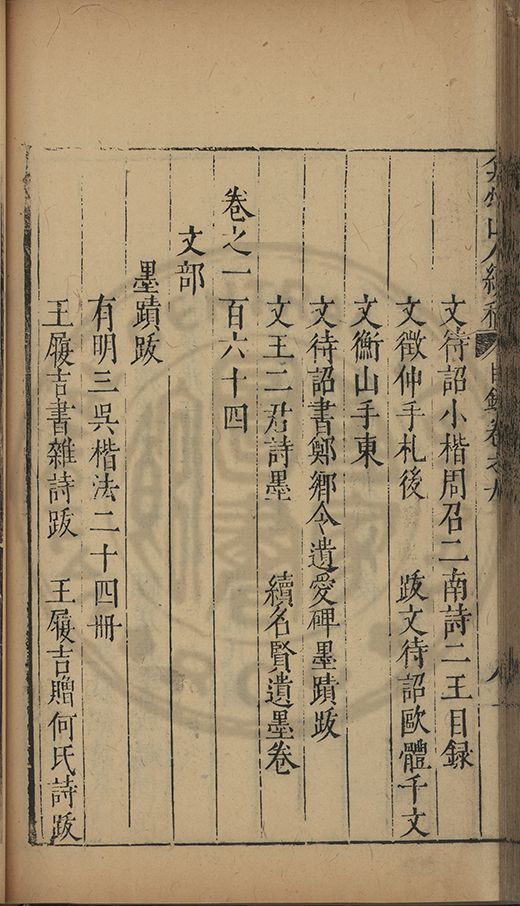 弇州山人續稿 目錄卷之九 八
文待詔小楷周召二南詩二王目録
文徵仲手札後 跋文待詔歐體千文
文衡山手柬
文待詔書鄭鄉令遺愛碑墨蹟跋
文王二君詩墨 續名賢遺墨卷
卷之一百六十四
文部
墨蹟跋
有明三吳楷法二十四冊
王履吉書雜詩跋 王履吉贈何氏詩跋